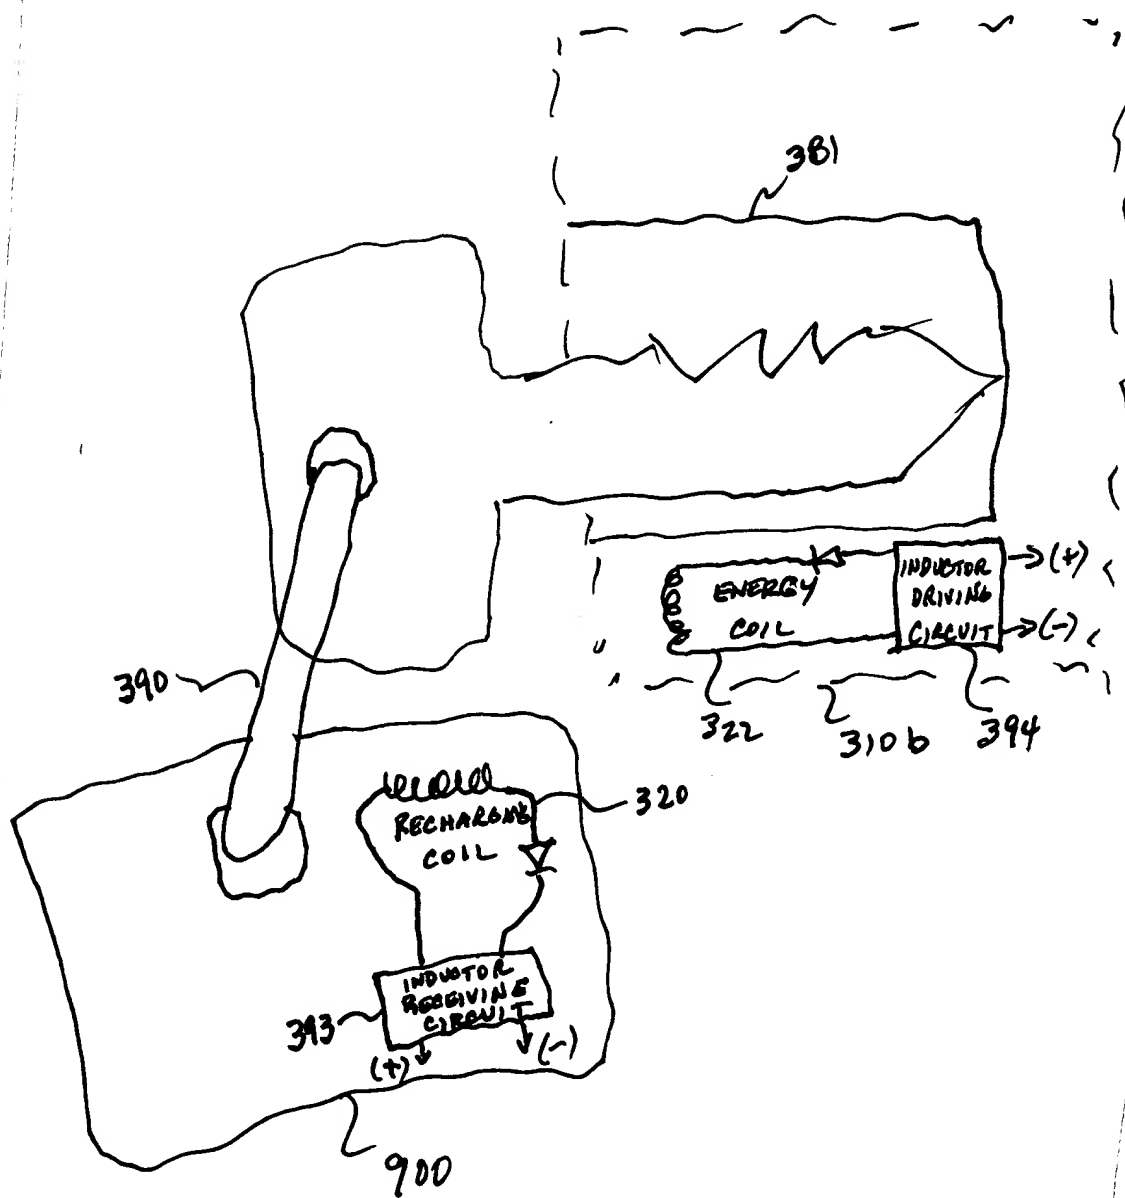 381
ENERGY
COIL
INDUCTOR
DRIVING
CIRCUIT
(+)
(-)
322
310b
394
390
320
RECHARGING
COIL
INDUCTOR
RECEIVING
CIRCUIT
393
(+)
(-)
900